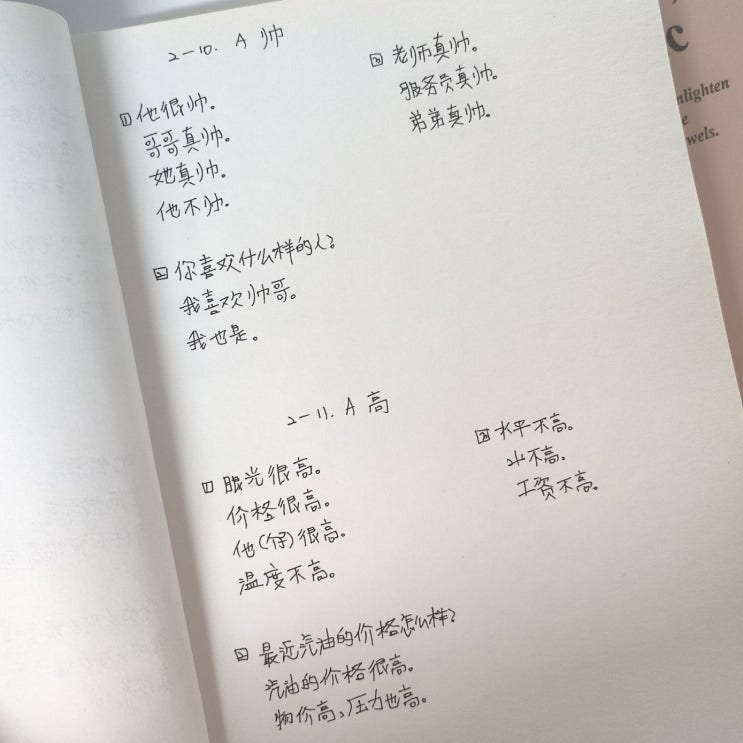 2-10. A 帅
1 他很帅。
哥哥真帅。
她真帅。
他不帅.
2 你喜欢什么样的人?
我喜欢帅哥。
我也是。
3 老师真帅。
服务员真帅.
弟弟真帅.
2-11. A 高
1 眼光很高。
价格很高。
他(个子)很高.
温度不高.
2 最近汽油的价格怎么样?
汽油的价格很高。
物价高,压力也高。
3 水平不高。
山不高。
工资不高。
c
nlighten
e
wels.